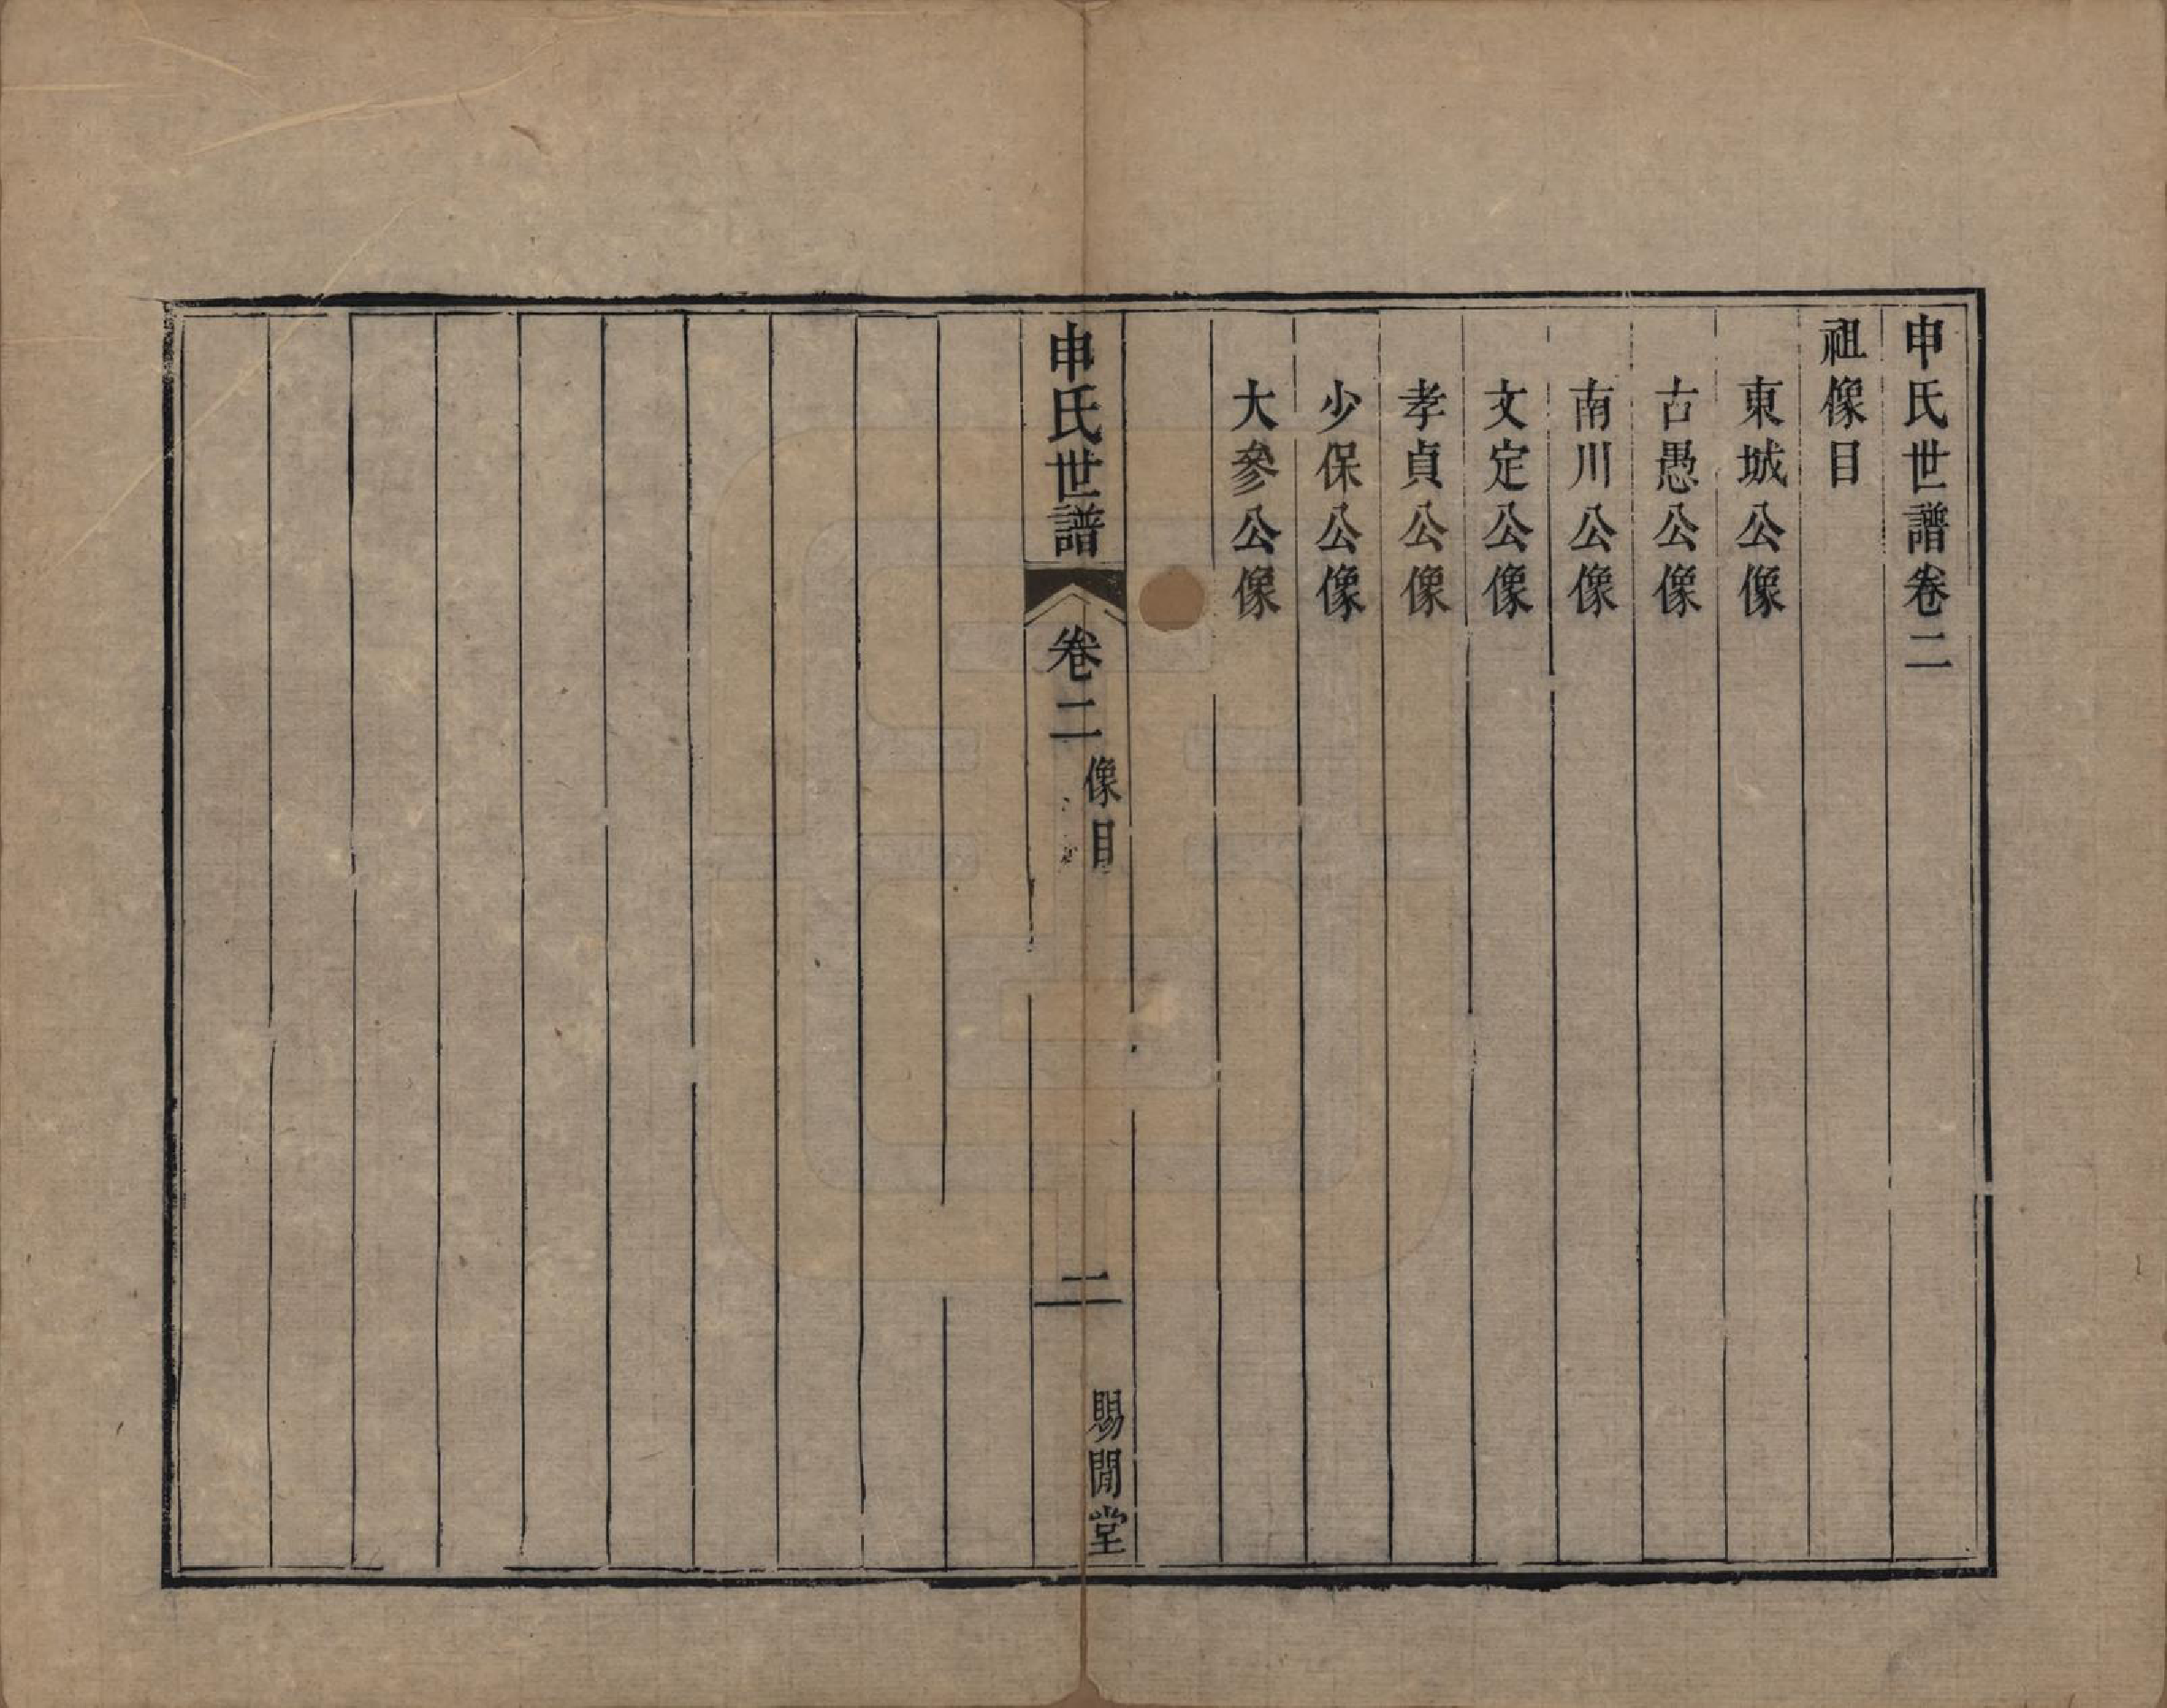 申氏世譜卷二
祖像目
東城公像
古愚公像
南川公像
文定公像
孝貞公像
少保公像
大參公像
申氏世譜
卷二
像目
二
賜閒堂